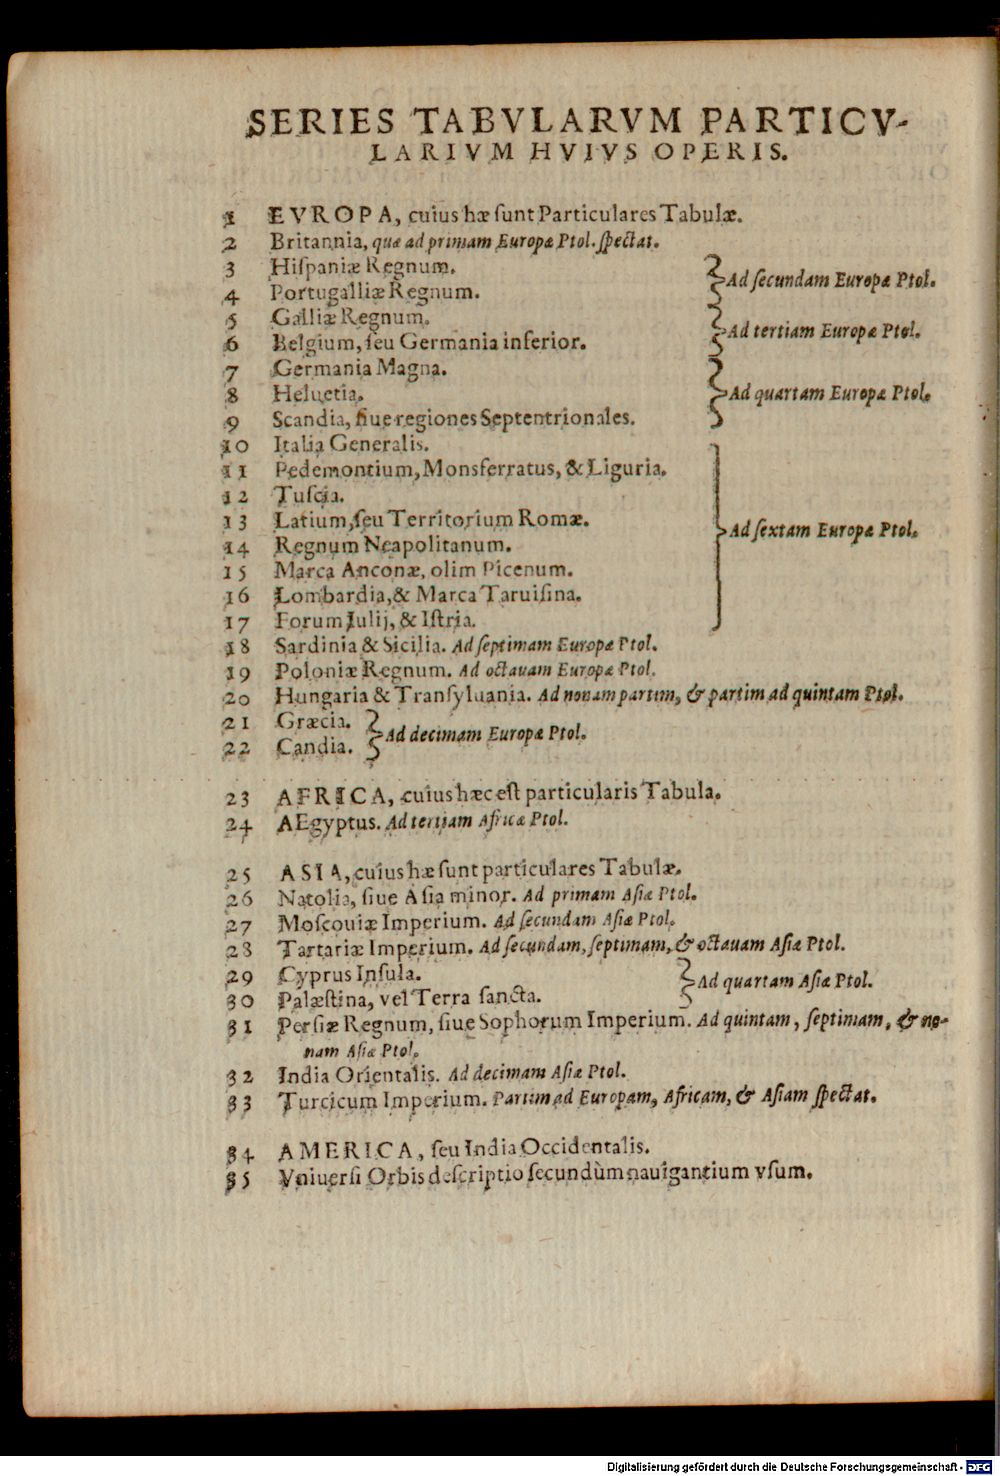 SERIES TABVLARVM PARTICV-
LARIVM HVIVS OPERIS.
1 EVROPA, cuius hæ ſunt Particulares Tabulæ.
2 Britannia, quæ ad primam Europæ Ptol. ſpectat.
3 Hiſpaniæ Regnum.
4 Portugalliæ Regnum.
Ad ſecundam Europæ Ptol.
5 Galliæ Regnum.
6 Belgium, ſeu Germania inferior.
Ad tertiam Europæ Ptol.
7 Germania Magna.
8 Heluetia.
9 Scandia, ſiue regiones Septentrionales.
Ad quartam Europæ Ptol.
10 Italia Generalis.
11 Pedemontium, Monsferratus, & Liguria.
12 Tuſcia.
13 Latium, ſeu Territorium Romæ.
14 Regnum Neapolitanum.
15 Marca Anconæ, olim Picenum.
16 Lombardia, & Marca Taruiſina.
17 Forum Iulij, & Iſtria.
Ad ſextam Europæ Ptol.
18 Sardinia & Sicilia. Ad ſeptimam Europæ Ptol.
19 Poloniæ Regnum. Ad octauam Europæ Ptol.
20 Hungaria & Tranſyluania. Ad nonam partim, & partim ad quintam Ptol.
21 Græcia.
22 Candia.
Ad decimam Europæ Ptol.
23 AFRICA, cuius hæc eſt particularis Tabula.
24 AEgyptus. Ad tertiam Africæ Ptol.
25 ASIA, cuius hæ ſunt particulares Tabulæ.
26 Natolia, ſiue Aſia minor. Ad primam Aſiæ Ptol.
27 Moſcouiæ Imperium. Ad ſecundam Aſiæ Ptol.
28 Tartariæ Imperium. Ad ſecundam, ſeptimam, & octauam Aſiæ Ptol.
29 Cyprus Inſula.
30 Palæſtina, vel Terra ſancta.
Ad quartam Aſiæ Ptol.
31 Perſiæ Regnum, ſiue Sophorum Imperium. Ad quintam, ſeptimam, & no-
nam Aſiæ Ptol.
32 India Orientalis. Ad decimam Aſiæ Ptol.
33 Turcicum Imperium. Partim ad Europam, Africam, & Aſiam ſpectat.
34 AMERICA, ſeu India Occidentalis.
35 Vniuerſi Orbis deſcriptio ſecundùm nauigantium vſum.
Digitalisierung gefördert durch die Deutsche Forschungsgemeinschaft - DFG